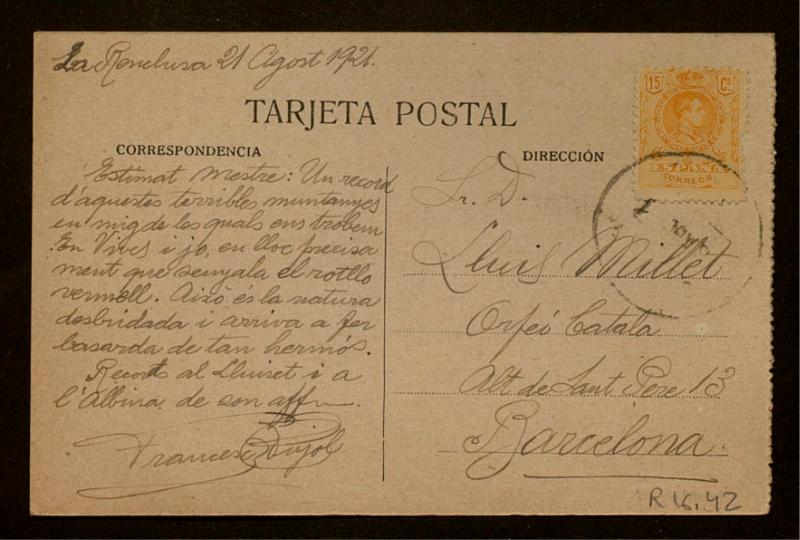 La Renclusa 21 Agost 1921.
TARJETA POSTAL
CORRESPONDENCIA
Estimat Mestre: Un record
d'aquestes terribles muntanyes
en mig de les quals ens trobem
En Vives i jo, en lloc precisa
ment que senyala el rotllo
vermell. Això és la natura
desbridada i arriva a fer
basarda de tan hermós.
Records al Lluiset i a
l'Albina de son affm.
Francesc Pujol
DIRECCIÓN
Sr. D.
Lluis Millet
Orfeó Català
Alt de Sant Pere 13
Barcelona.
15 Cs
ESPAÑA
CORREOS
R 16.42